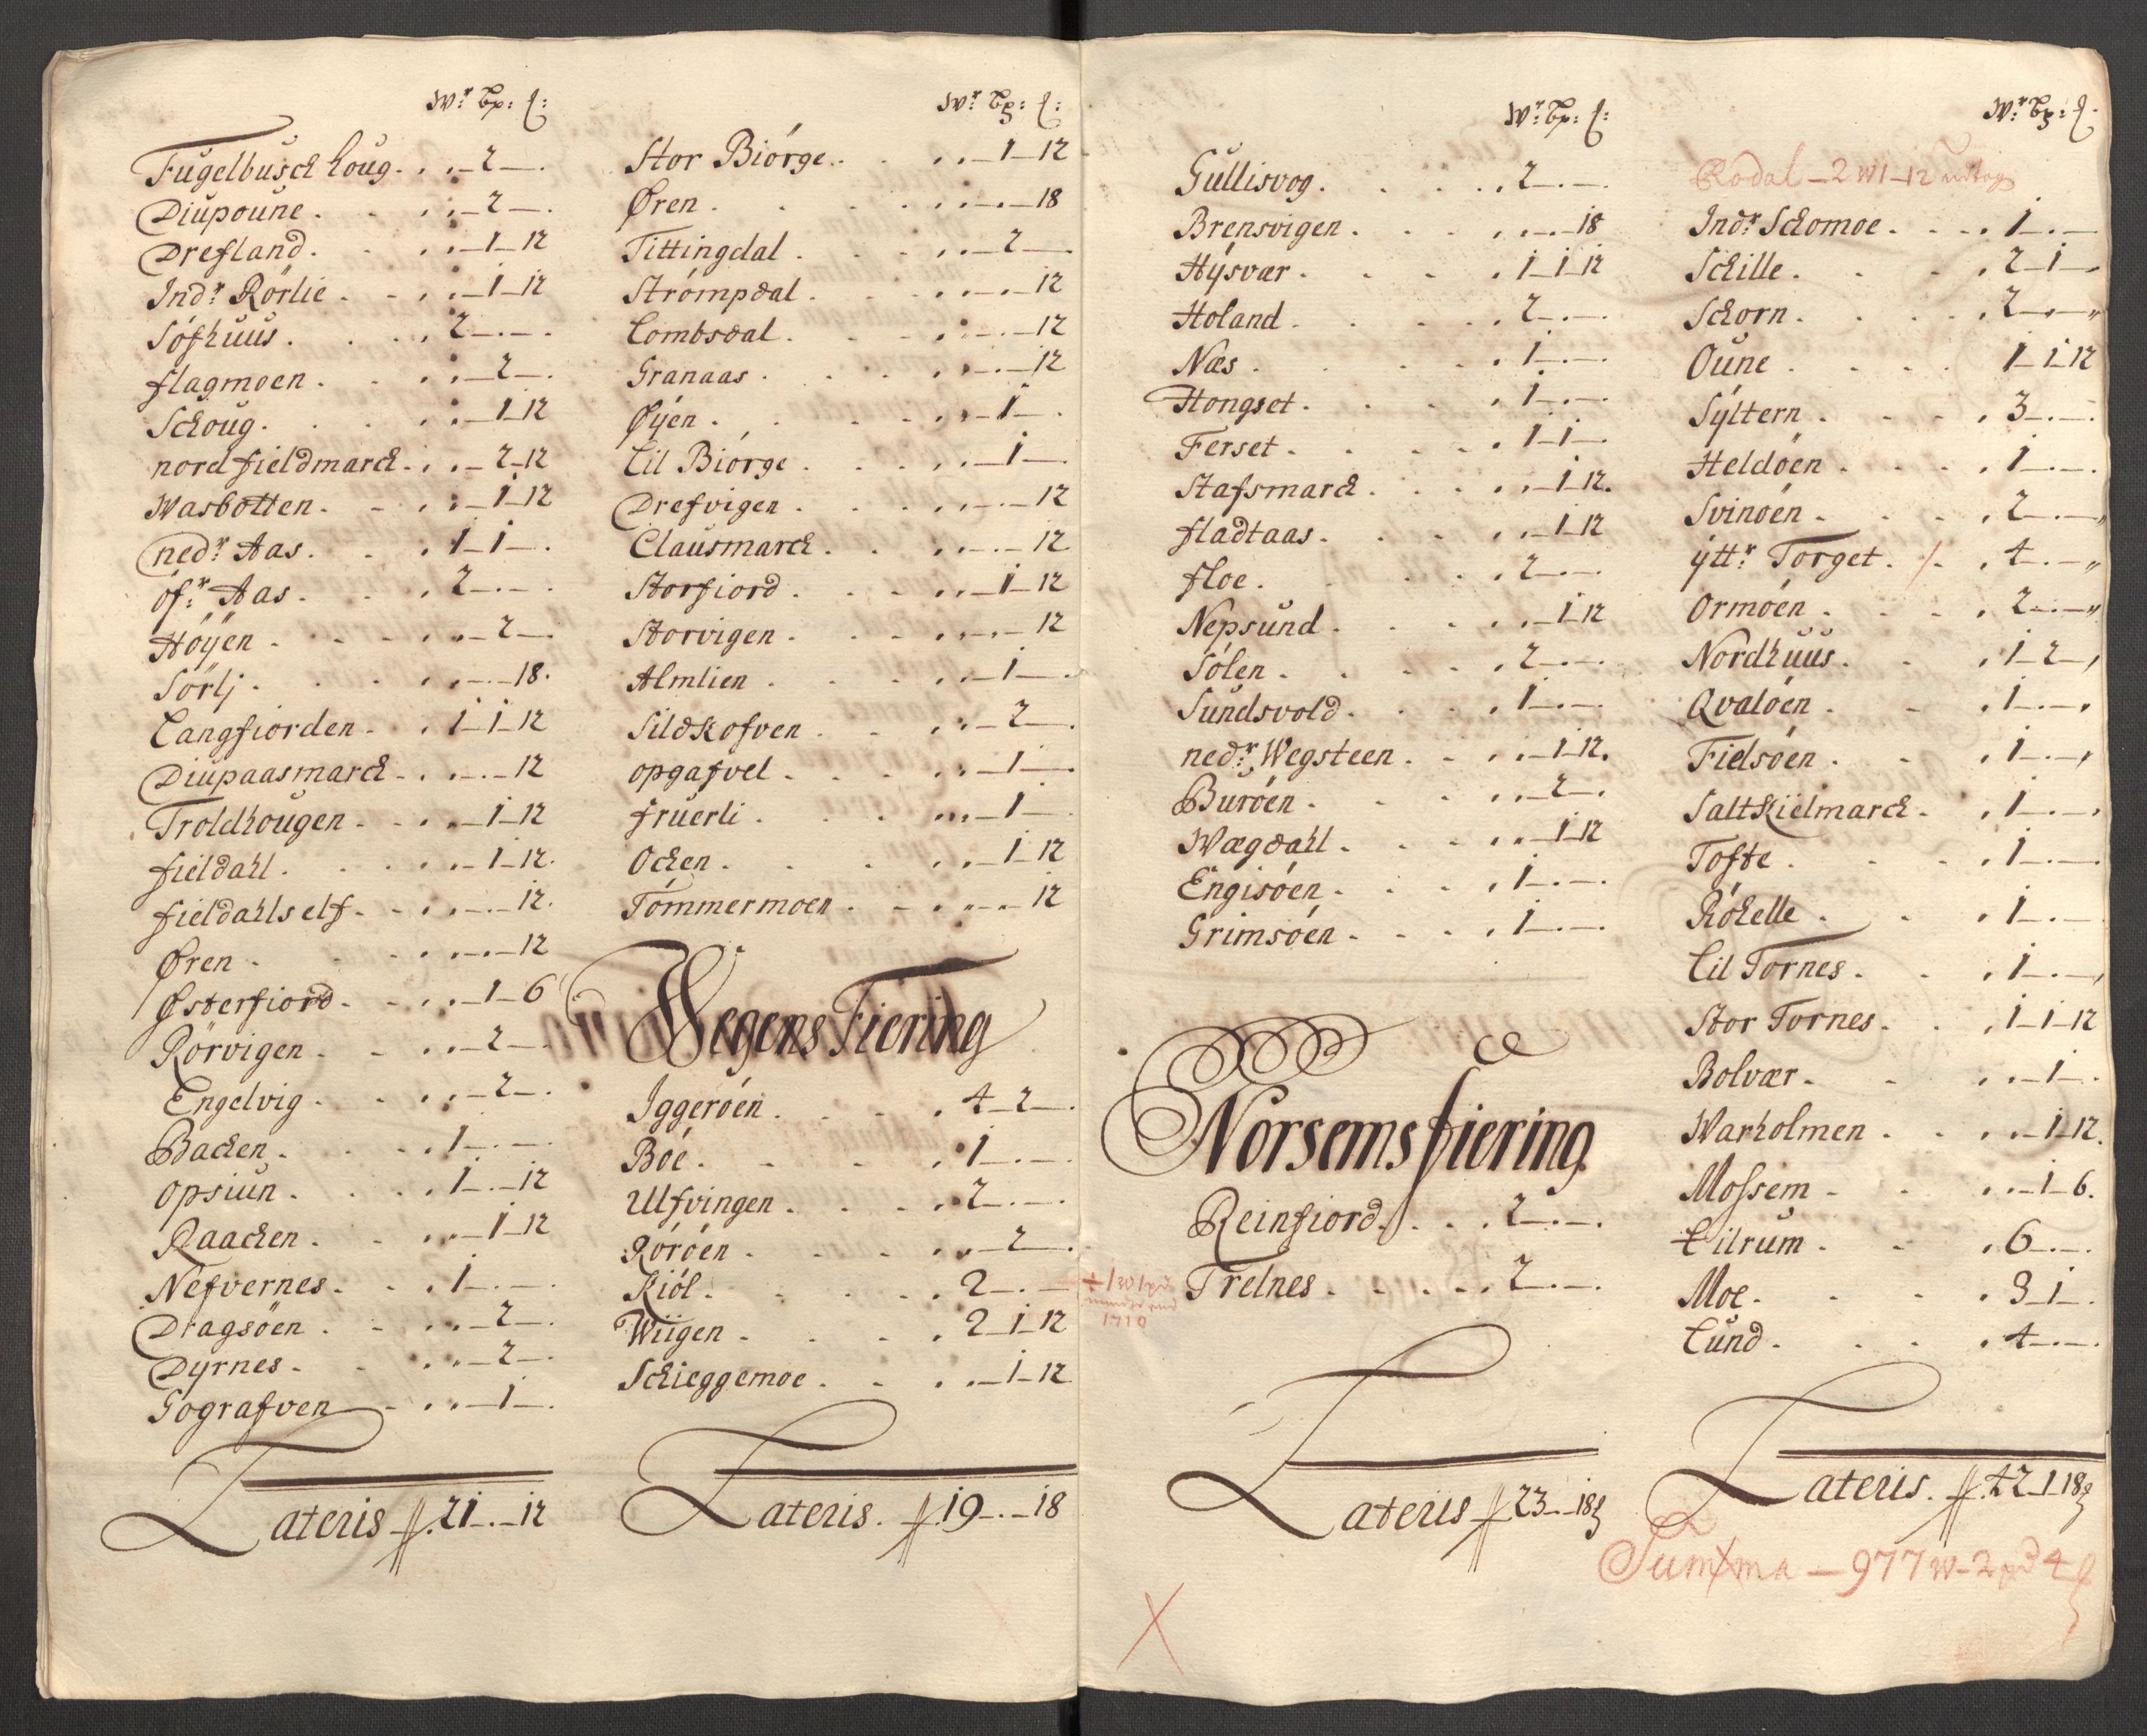 Wr: Bp: ʃ:
Fugelbusck houg . . . – 2 – .
Diupoune . . . – 2 – .
Drefland . . . – 1 – 12
Indr: Rörlie . . . – 1 – 12
Söfhuus . . . 2 – . –
flagmoen . . . – 2 – .
Schoug . . . – 1 – 12
nord fieldmarck . . . – 2 – 12
Wasbotten . . . – 1 – 12
nedr: Aas . . . 1 – 1 – .
ofr: Aas . . . 2 – . – .
Höÿen . . . – 2 – .
Sörlj . . . – . – 18.
Langfiorden . . . 1 – 1 – 12
Diupaasmarck . . . – . – 12
Troldhougen . . . – 1 – 12
fieldahl . . . – 1 – 12.
fieldahls elf . . . – . – 12.
Øren . . . – . – 12
Østerfiord . . . – 1 – 6
Rörvigen . . . – 2 –
Engelvig . . . – 2 – .
Backen . . . 1 – . –
opsiun . . . 1 – . – 12
Raacken . . . – 1 – 12
Nefvernes . . . 1 – . –
Dragsöen . . . – 2 – .
Dyrnes . . . – 2 – .
Gografven . . . – 1 – .
Lateris 21 – . – 12
Wr: Bp: ʃ:
Stor Biórge . . . – 1 – 12
Øren . . . – . – 18
Tittingdal . . . – 2 –
Strómpdal . . . – . – 12
Lombsdal . . . – . – 12
Granaas . . . – . – 12
Øÿen . . . – 1 – .
Lil Biórge . . . – 1 – .
Drefvigen . . . – . – 12
Clausmarck . . . – . – 12
Storfiord . . . – 1 – 12
Storvigen . . . – . – 12
Almlien . . . – 1 – .
Sildkofven . . . – 2 – .
opgafvel . . . – 1 – .
fruerli . . . – 1 –
Ocken . . . – 1 – 12
Tómmermoen . . . – . – 12
Wegens Fiering
Iggeróen . . . 4 – 2 – .
Boé . . . 1 – . –
Ulfvingen . . . 2 – . –
Róróen . . . – 2 – .
Kiól . . . 2 – . –
Wiigen . . . 2 – 1 – 12
Schieggemoe . . . – 1 – 12
Lateris . 19 – . – 18
Wr: Bp: ʃ:
Gullisvog . . . 2 – . –
Brensvigen . . . – . – 18
Hÿsvær . . . 1 – 1 – 12
Holand . . . 2 – . –
Næs . . . 1 – . –
Hongset . . . 1 – . –
Ferset . . . 1 – 1 – .
Stafsmarck . . . – 1 – 12.
fladtaas . . . – 1 – 12
floe . . . 2 – . –
Nepsund . . . – 1 – 12
Sólen . . . 2 – . –
Sundsvold . . . 1 – . –
nedr: Wegsteen . . . – 1 – 12.
Buróen . . . – 2 – .
Wægdahl . . . – 1 – 12
Engisóen . . . 1 – . –
Grimsóen . . . 1 – . –
Norsems fiering
Reinfiord . . . 2 – . –
Trelnes . . . 2 – . –
1710
Lateris 23 – . – 18
Wr: Bp: ʃ.
Rodal – 2 W 1 – 12
Indr: Schomoe . . . 1 – . –
Schille . . . 2 – 1 –
Schorn . . . 2 – . –
Oune . . . 1 – 1 – 12
Sÿltern . . . 3 – . –
Heldóen . . . 1 – . –
Svinóen . . . 2 – . –
ÿttr: Torget . . . 4 – . –
Ormóen . . . 2 – . –
Nordhuus . . . 1 – 2 –
Qvalóen . . . 1 – . –
Fielsóen . . . 1 – . –
Saltkielmarck . . . 1 – . –
Tofte . . . 1 – . –
Róhelle . . . 1 – . –
Lil Tornes . . . 1 – . –
Stor Tornes . . . 1 – 1 – 12
Bolvær . . . – 1 – .
Warholmen . . . – 1 – 12.
Mossem . . . – 1 – 6.
Tilrum . . . 6 – . –
Moe . . . 3 – 1 – .
Lund . . . 4 – . –
Lateris . 42 – 1 – 18
Summa – 977 W – 2 pd 4